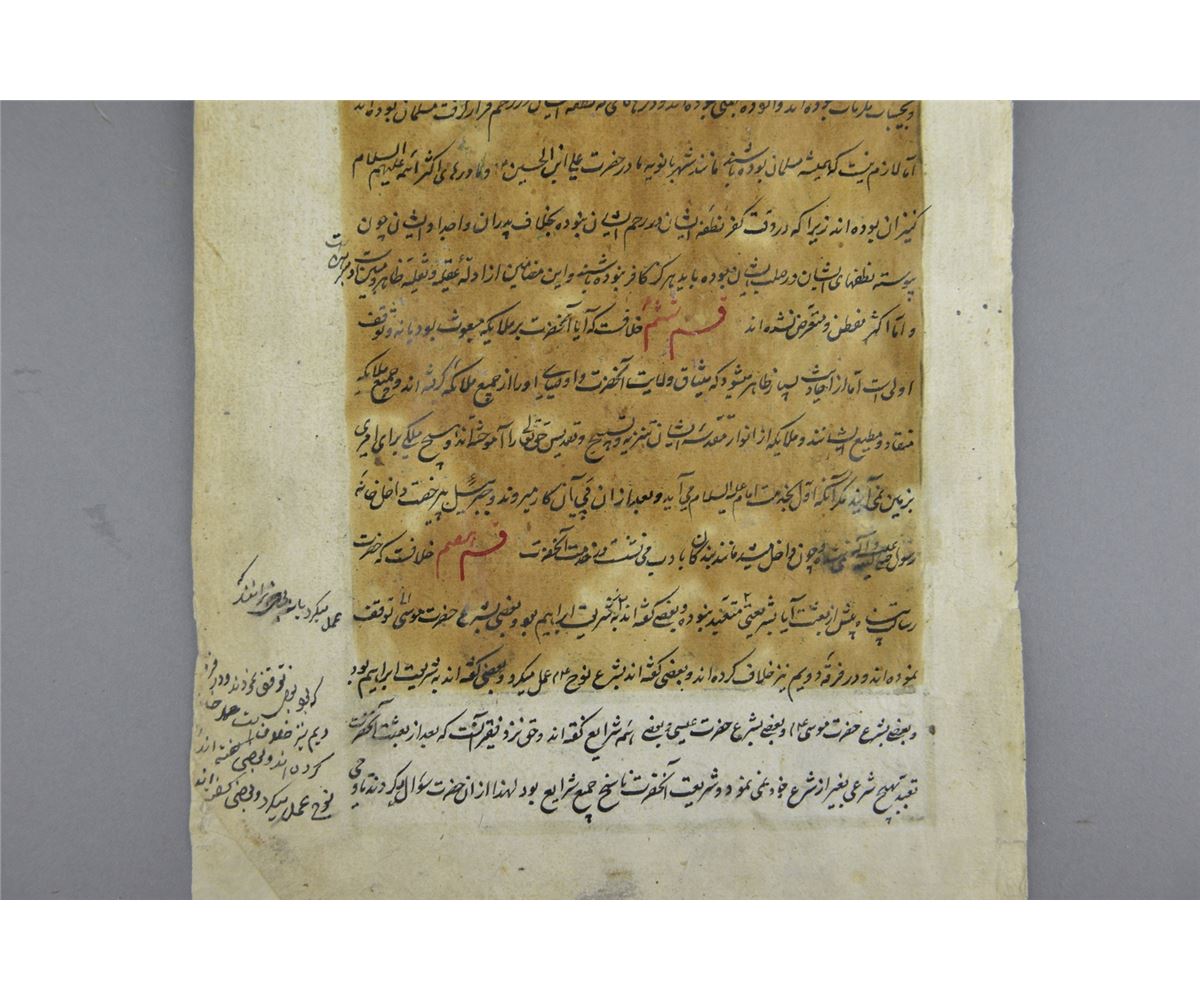 اما لازم نیست که همیشه مسلمان بوده باشند مانند شهربانویه مادر حضرت علی ابن الحسین ع و مادرهای اکثر ائمه علیهم السلام
کنیزان بوده اند زیرا که در وقت کفر نطفه ایشان در رحم ایشان نبوده بخلاف پدران و اجداد ایشان چون
پیوسته نطفهای ایشان در صلب ایشان بوده باید هرگز کافر نبوده باشند و این مضامین از ادله عقلیه و نقلیه ظاهر
و اما اکثر متفطن و متعرض نشده اند قسم ششم خلافست که آیا آنحضرت بر ملایکه مبعوث بود یا نه و توقف
اولی است اما از احادیث بسیار ظاهر میشود که میثاق ولایت آنحضرت و اوصیای او را از جمیع ملایکه گرفته اند و جمیع ملایکه
منقاد و مطیع ایشانند و ملایکه از انوار مقدسه ایشان تنزیه و تسبیح و تقدیس حق تعالی را آموختند و هیچ ملکی برای امری
بزمین نمی آید مگر آنکه اول بخدمت امام علیه السلام می آید و بعد از ان پی آن کار میروند و جبرئیل بی رخصت داخل خانه
رسول نمی شد و چون داخل میشد مانند بندگان با دب می نشست در خدمت آنحضرت قسم هفتم خلافست که حضرت
رسالت پناه پیش از بعثت آیا بشریعتی متعبد نبوده و بعضی گفته اند بشریعت ابراهیم بود و بعضی بشرع حضرت موسی توقف
نموده اند و در فرقه دویم نیز خلاف کرده اند و بعضی گفته اند بشرع نوح ع عمل میکرد و بعضی گفته اند بشریعت ابراهیم بود
و بعضی بشرع حضرت موسی ع و بعضی بشرع حضرت عیسی و بعضی همه شرایع گفته اند و حق نزد فقیر آنست که بعد از بعثت آنحضرت
تعبد بهیچ شرعی بغیر از شرع خود نمی نمود و شریعت آنحضرت ناسخ جمیع شرایع بود لهذا از ان حضرت سؤال میکردند
عمل میکرد یا
توقف نمودند و در
دیم نیز خلاف
کرده اند و بعضی گفته اند
نوح عمل میکرد و بعضی گفته اند